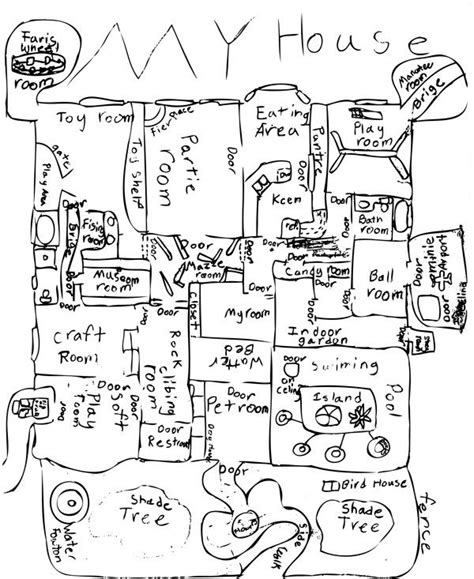 MY House
Faris
Wheel
room
Manatee
room
Brige
Toy room
Fier Place
Partie
room
Eating
Area
Pantree
Play
room
Toy shelf
gate
Play Area
Door
Keen
Door
Door
Door
Fising
room
Brige
Door
Door
Door
Bath
room
Door
Museom
room
Door
Mazze
room
Door
Candy room
Door
Ball
room
Airport
Door
Closet
My room
Indoor
garden
Door
Craft
Room
Rock
Clibing
room
Watter
Bed
Swiming
Pool
Door
on
celing
Island
Door
Play
Soft
room
Door
Door
Door
Restroom
Door
Pet room
Door
Bird House
Shade
Tree
Shade
Tree
Water
Fownton
Side
Walk
fence